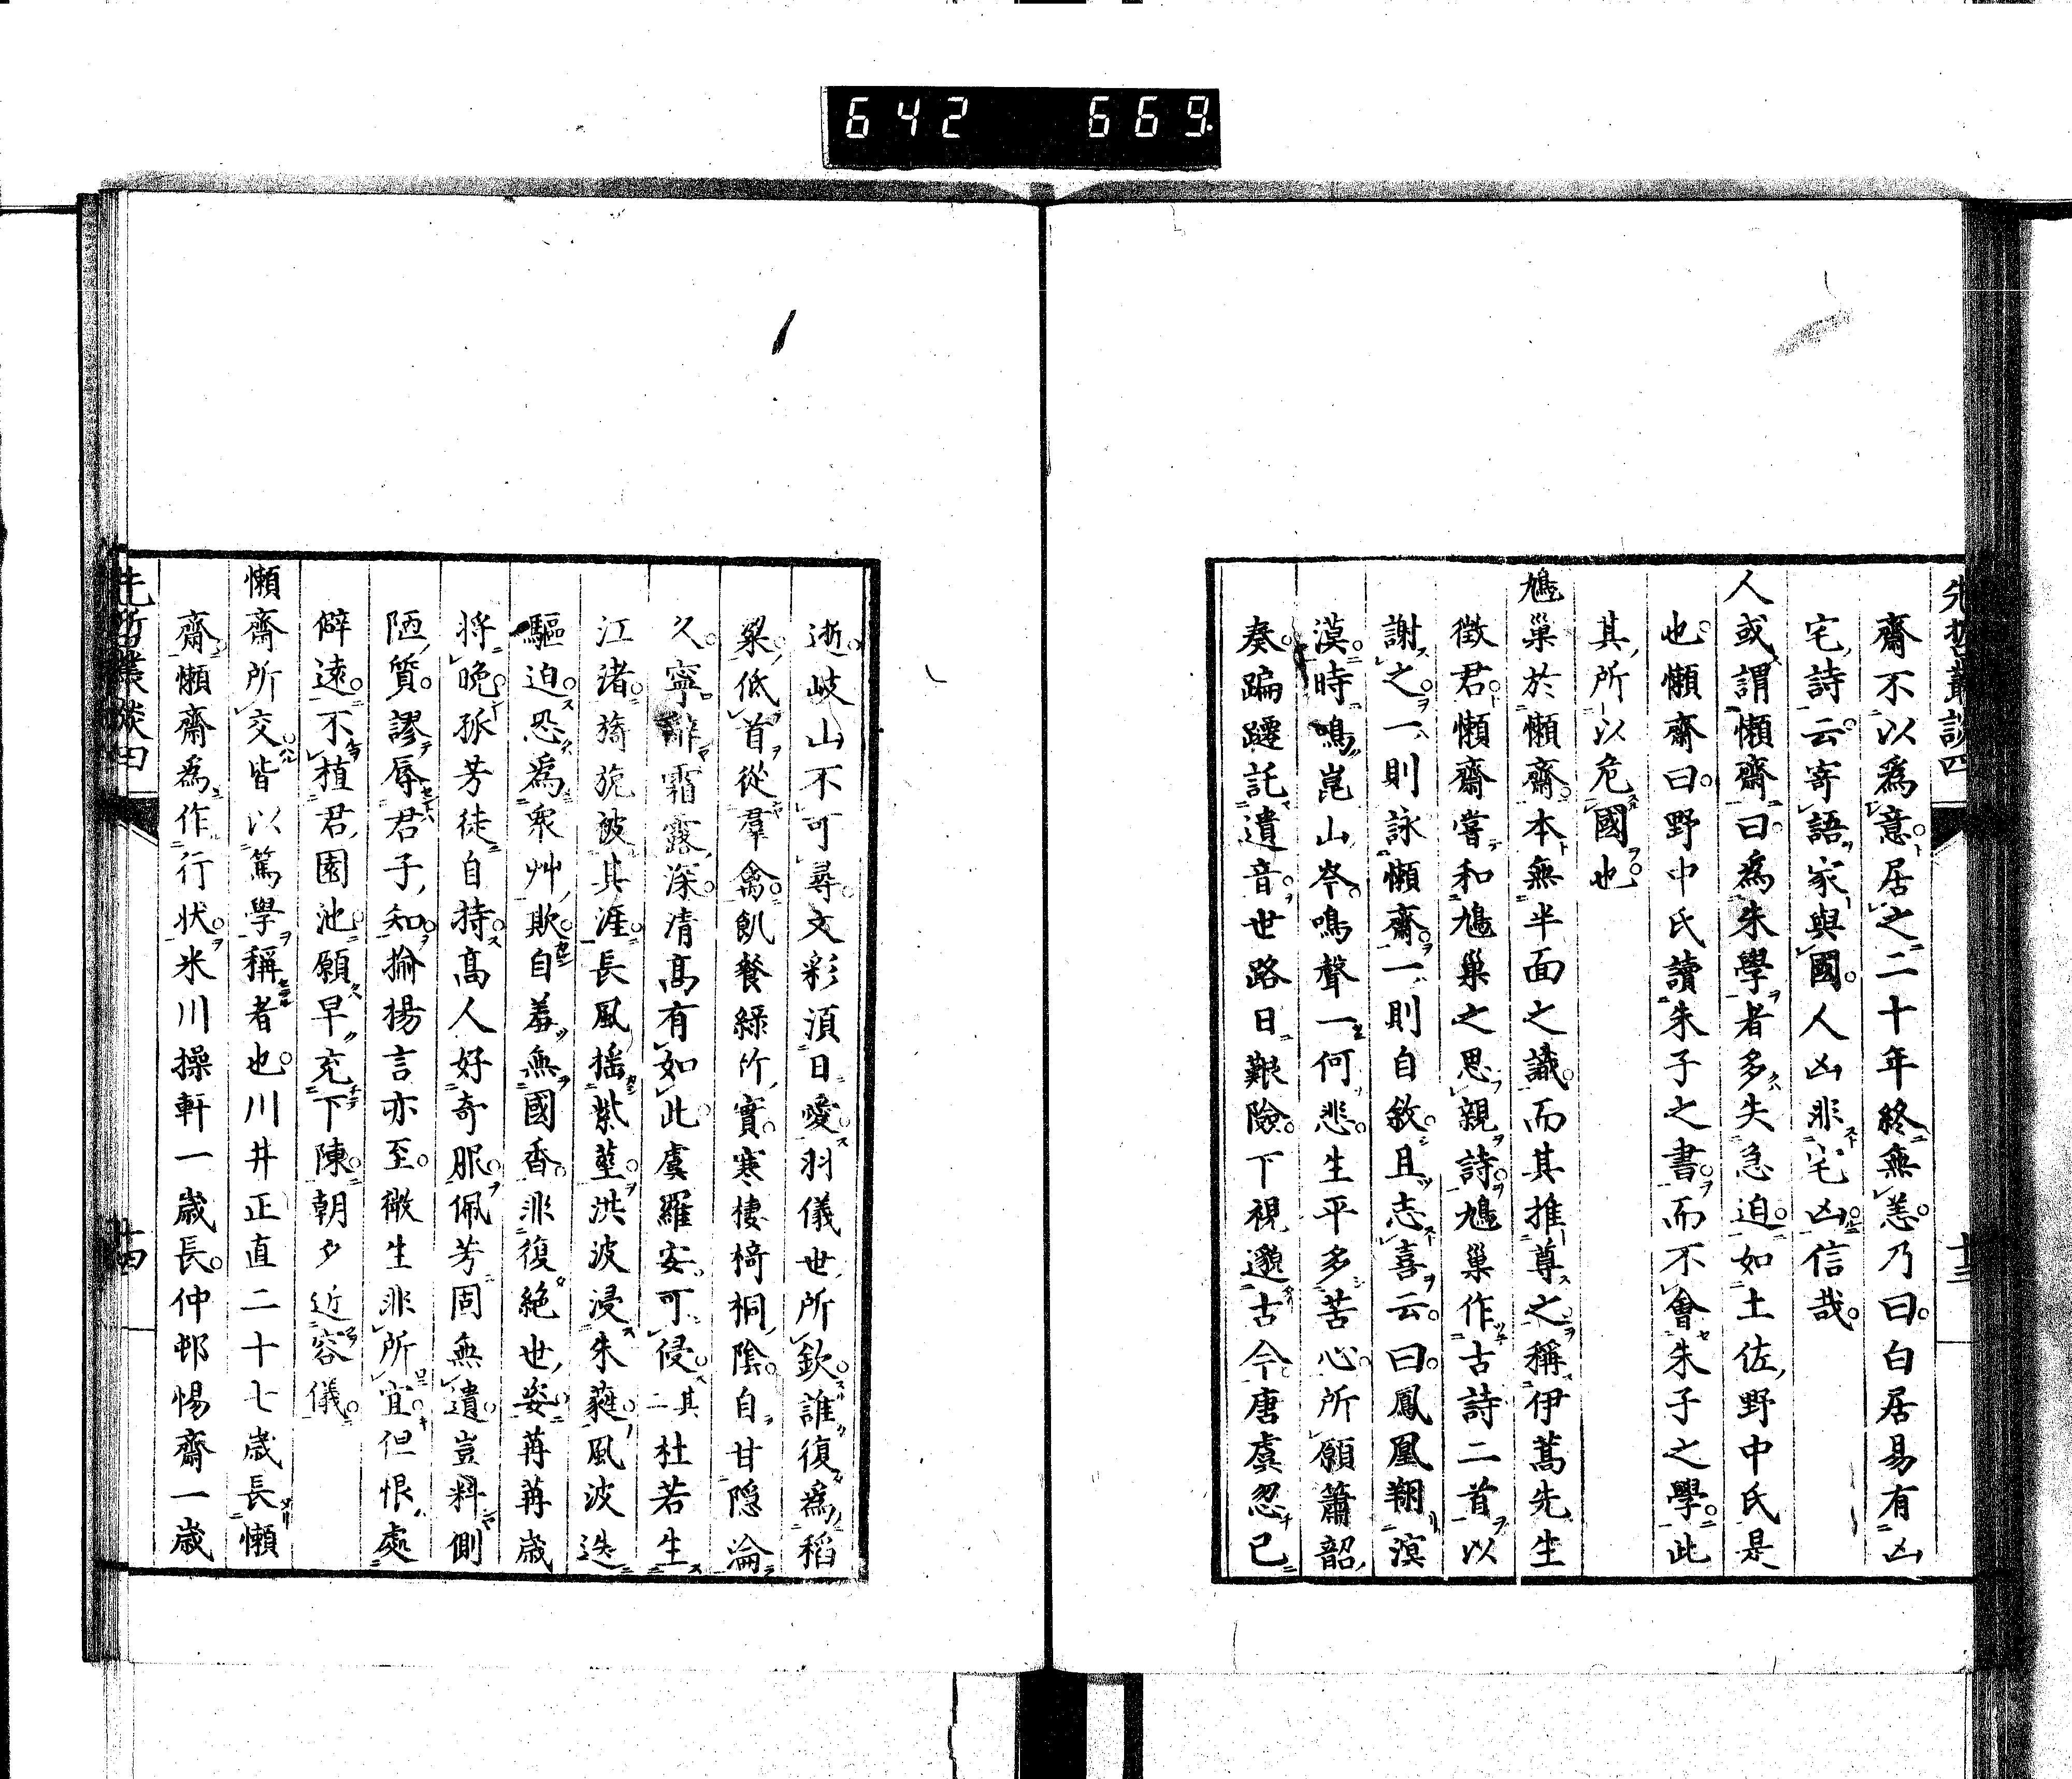 642 669
先哲叢談四
齋不以爲意居之二十年終無恙乃曰白居易有凶
宅詩云寄語家與國人凶非宅凶信哉
人或謂懶齋曰爲朱學者多失急迫如土佐野中氏是
也懶齋曰野中氏讀朱子之書而不會朱子之學此
其所以危國也
鳩巢於懶齋本無半面之識而其推尊之稱伊蒿先生
徵君懶齋嘗和鳩巢之思親詩鳩巢作古詩二首以
謝之一則詠懶齋一則自敘且志喜云曰鳳凰翔溟
漠時鳴崑山岑鳴聲一何悲生平多苦心所願簫韶
奏蹁躚託遺音世路日艱險下視邈古今唐虞忽已
十三
逝岐山不可尋文彩須日愛羽儀世所欽誰復爲稻
粱低首從羣禽飢餐綠竹實寒棲椅桐陰自甘隱淪
久寧辭霜露深清高有如此虞羅安可侵其二杜若生
江渚旖旎被其涯長風搖紫莖洪波浸朱蕤風波迭
驅迫恐爲衆艸欺自羞無國香非復絕世姿苒苒歲
将晩孤芳徒自持高人好奇服佩芳固無遺豈料側
陋質謬辱君子知揄揚言亦至微生非所宜但恨處
僻遠不植君園池願早充下陳朝夕近容儀
懶齋所交皆以篤學稱者也川井正直二十七歲長懶
齋懶齋爲作行状米川操軒一歲長仲邨惕齋一歲
先哲叢談四
十四